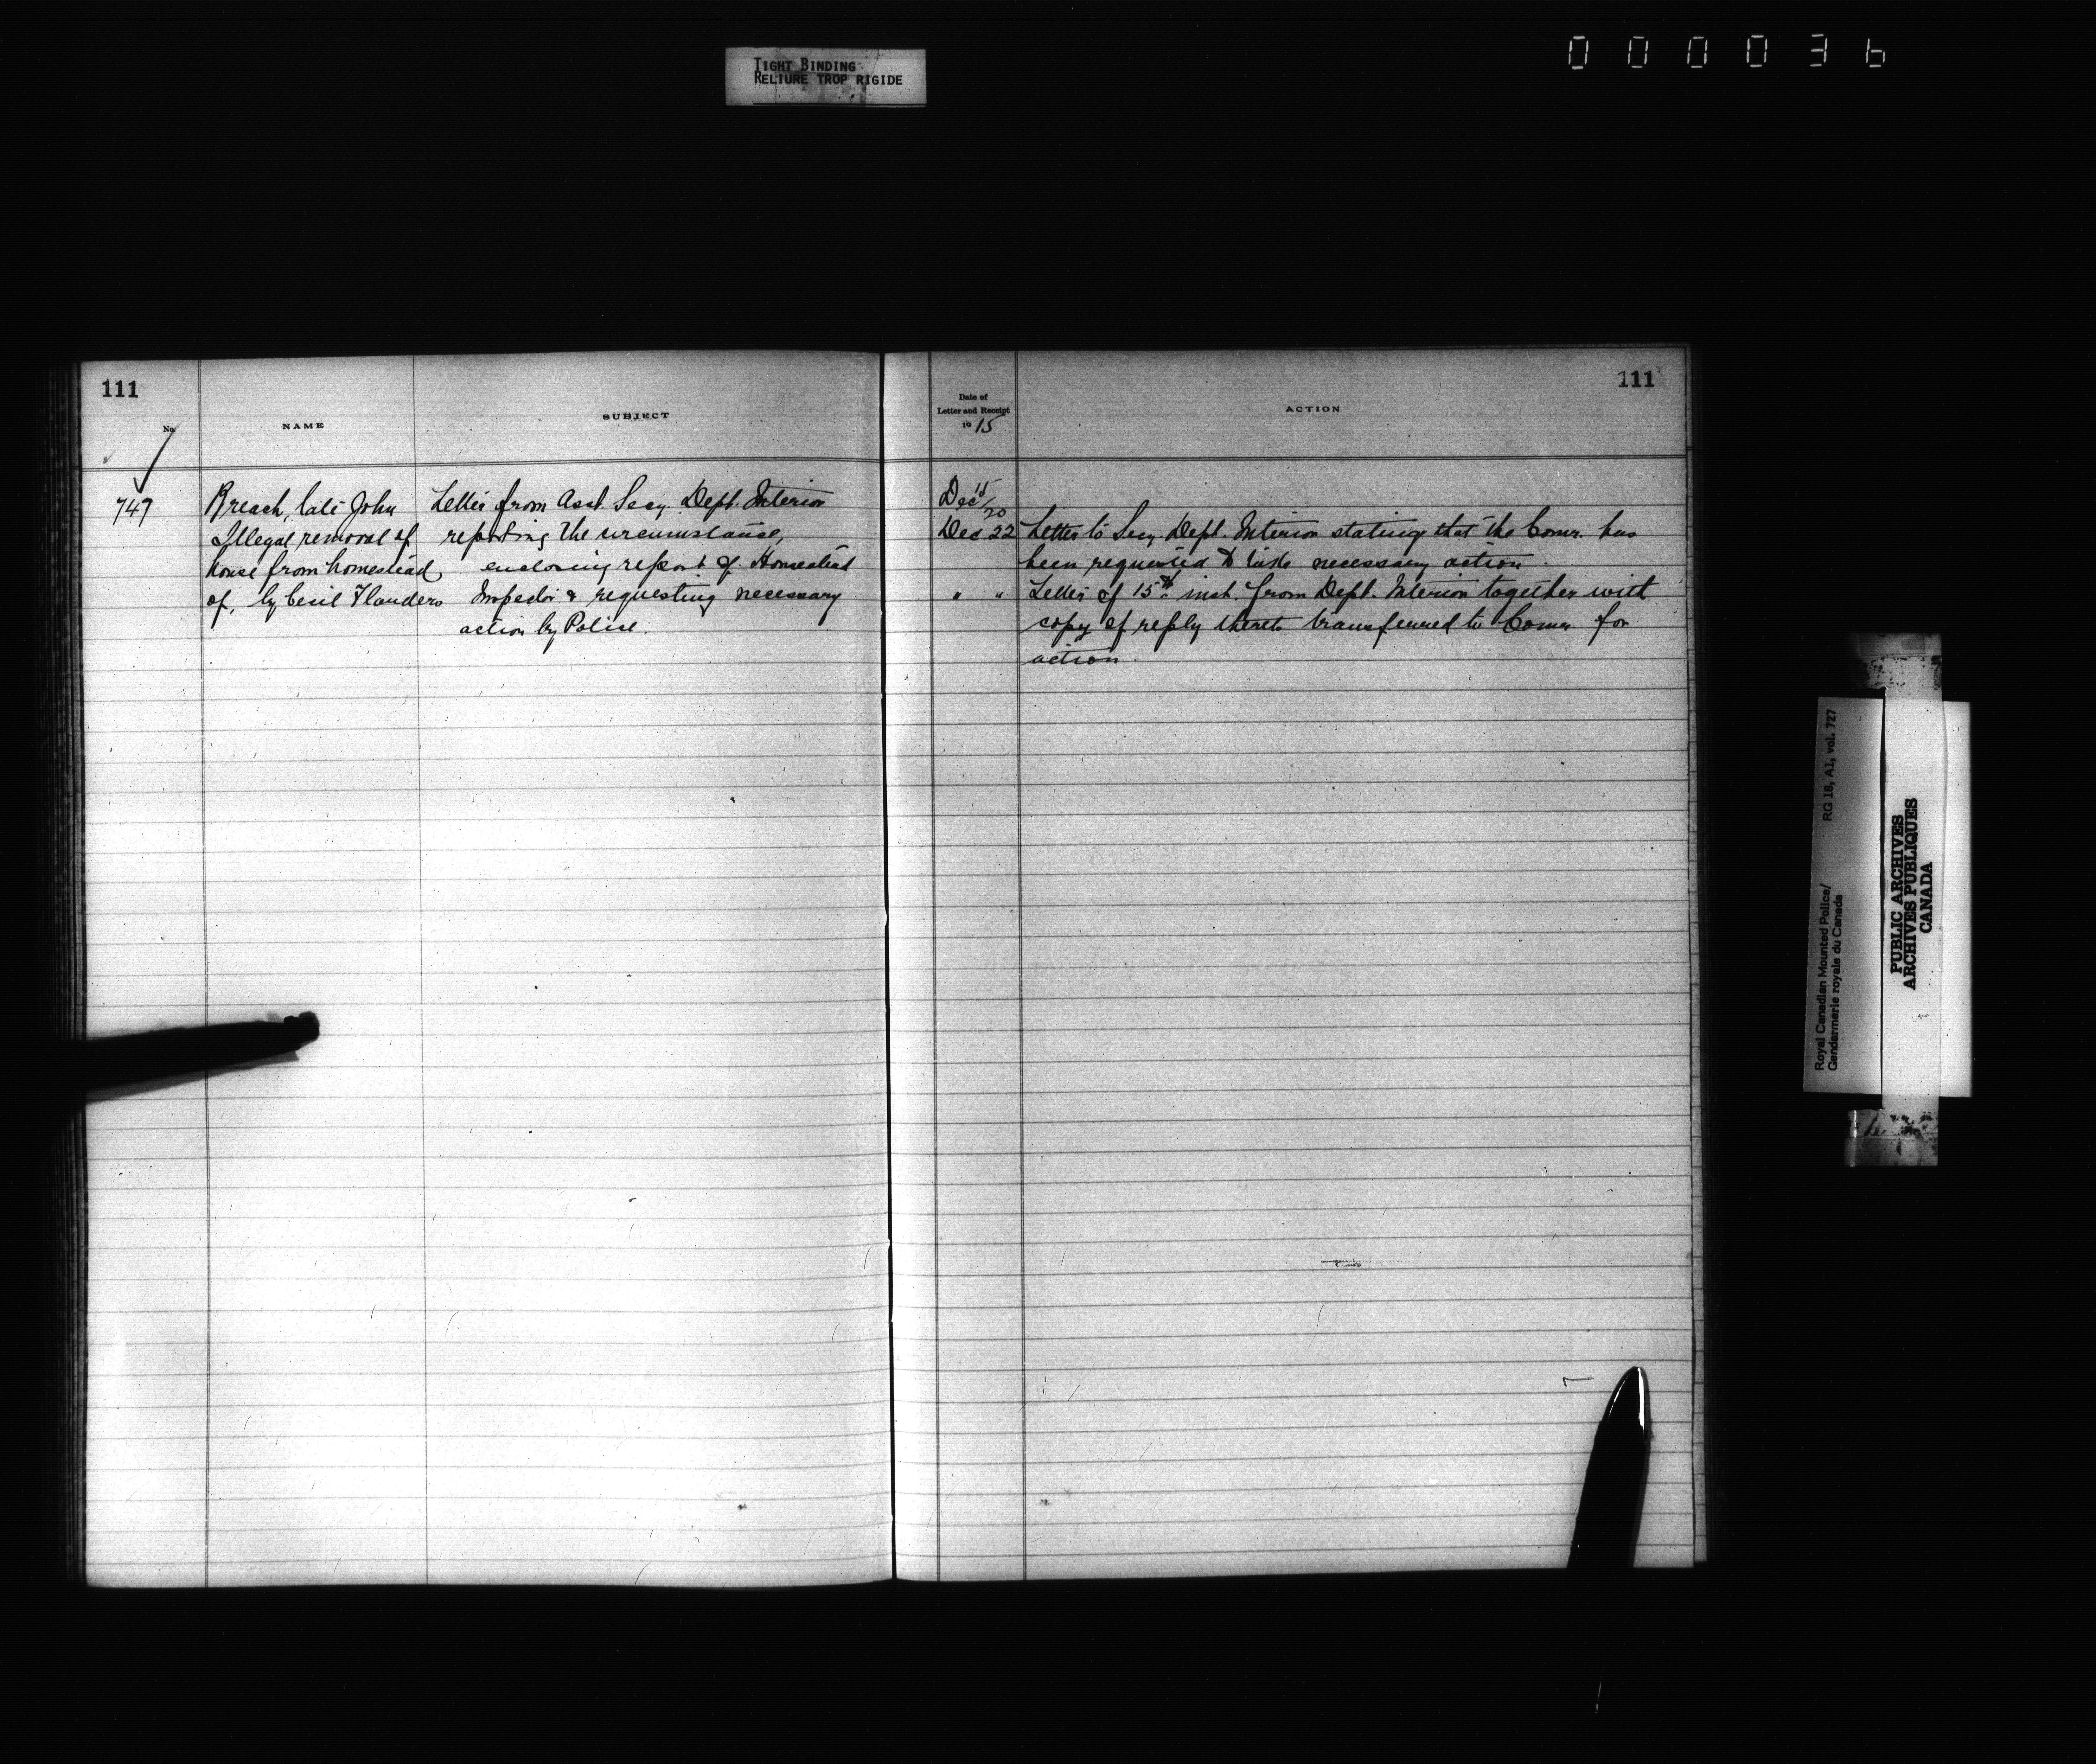 TIGHT BINDING
RELIURE TROP RIGIDE
000036
111
No.
NAME
SUBJECT
747
Breach, late John
Illegal removal of
house from homestead
of, by Cecil Flanders
Letter from Asst. Secy. Dept. Interior
reporting the circumstance,
enclosing report of Homestead
Inspector & requesting necessary
action by Police.
Date of
Letter and Receipt
1915
ACTION
111
Dec 15/20
Dec 22 Letter to Secy. Dept. Interior stating that the Comr. has
been requested to take necessary action.
" " Letter of 15th inst. from Dept. Interior together with
copy of reply thereto transferred to Comr. for
action.
Royal Canadian Mounted Police/ RG 18, A1, vol. 727
Gendarmerie royale du Canada
PUBLIC ARCHIVES
ARCHIVES PUBLIQUES
CANADA